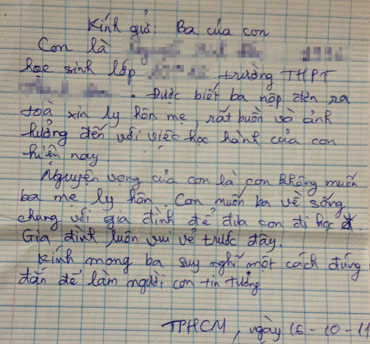 Kính gửi: Ba của con
Con là
học sinh lớp trường THPT
. Được biết ba nộp đơn ra
toà xin ly hôn mẹ, rất buồn và ảnh
hưởng đến với việc học hành của con
hiện nay
Nguyện vọng của con là con không muốn
ba mẹ ly hôn. Con muốn ba về sống
chung với gia đình để đưa con đi học.
Gia đình luôn vui vẻ trước đây.
Kính mong ba suy nghĩ một cách đúng
đắn để làm người con tin tưởng
TPHCM, ngày 16-10-11